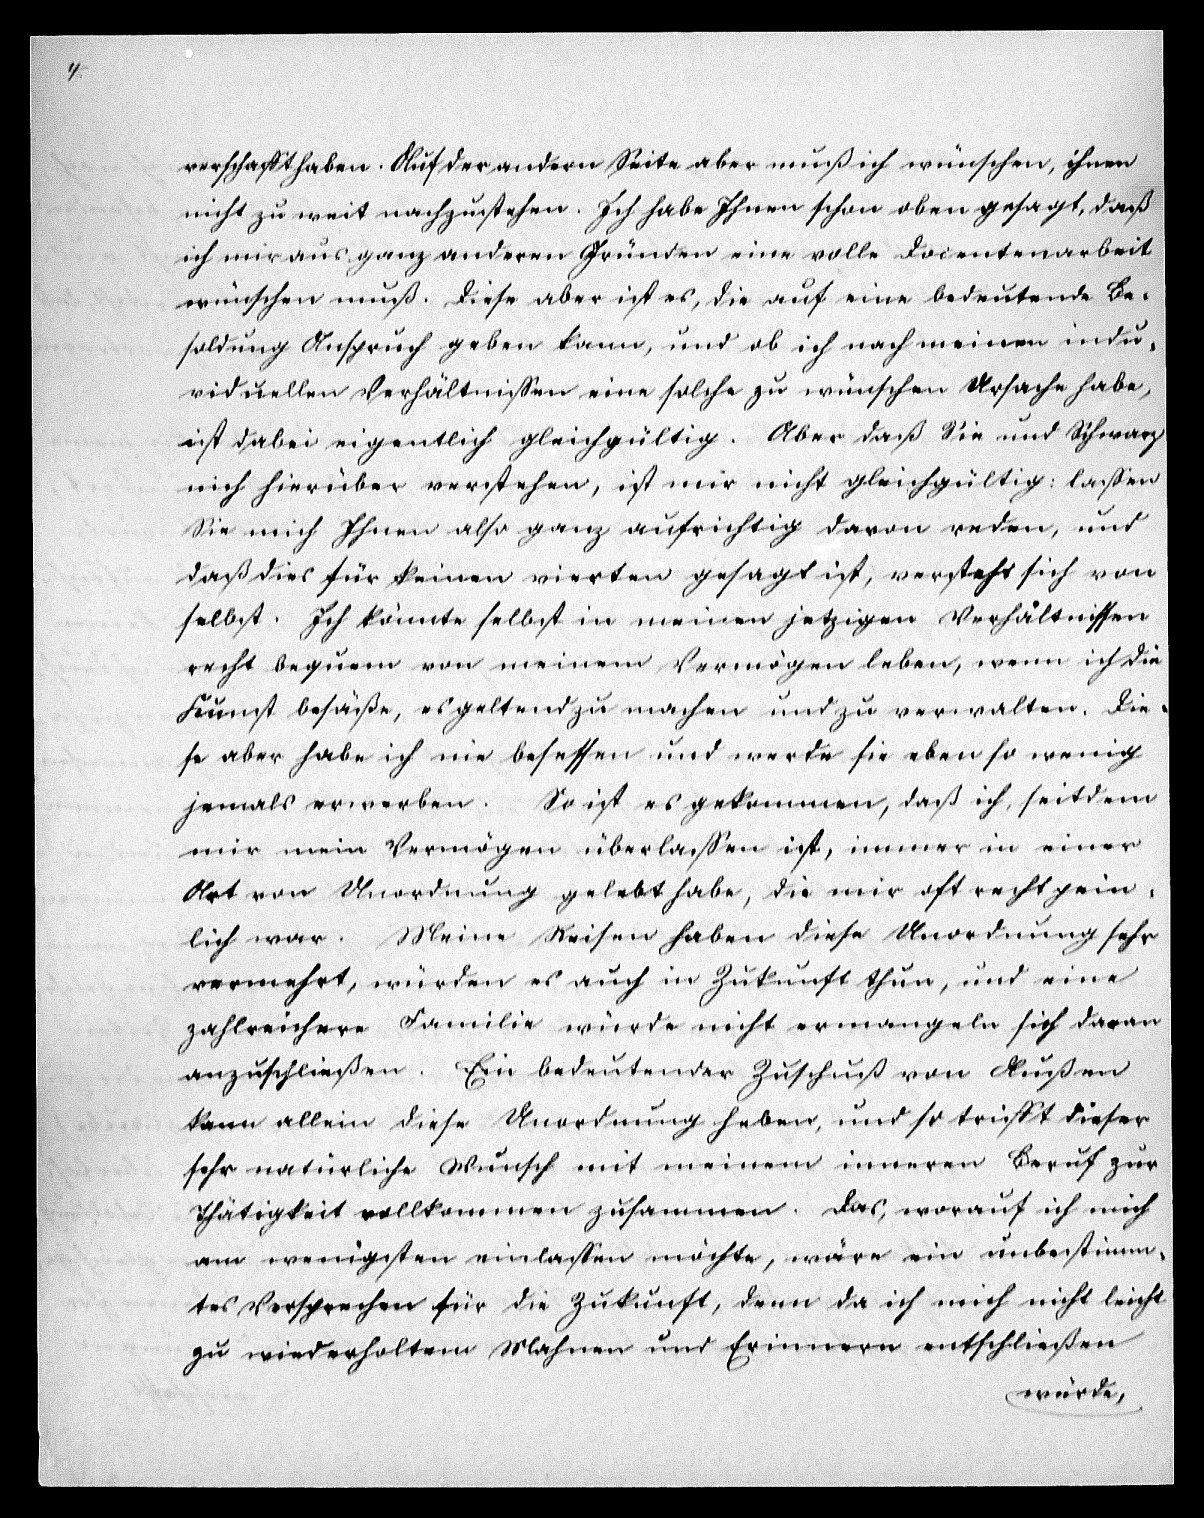 4
verschafft haben. Auf der andern Seite aber muß ich wünschen, ihnen
nicht zu weit nachzustehen. Ich habe Ihnen schon oben gesagt, daß
ich mir aus ganz anderen Gründen eine volle Docentenarbeit
wünschen muß. Diese aber ist es, die auf eine bedeutende Be-
soldung Anspruch geben kann, und ob ich nach meinen indu-
viduellen Verhältnissen eine solche zu wünschen Ursache habe,
ist dabei eigentlich gleichgültig. Aber daß Sie und Schwarz
mich hierüber verstehen, ist mir nicht gleichgültig: lassen
Sie mich Ihnen also ganz aufrichtig davon reden, und
daß dies für keinen vierten gesagt ist, versteht sich von
selbst. Ich könnte selbst in meinen jetzigen Verhältnissen
recht bequem von meinem Vermögen leben, wenn ich die
Kunst besäße, es geltend zu machen und zu verwalten. Die-
se aber habe ich nie besessen und werde sie eben so wenig
jemals erwerben. So ist es gekommen, daß ich, seitdem
mir mein Vermögen überlassen ist, immer in einer
Art von Unordnung gelebt habe, die mir oft recht pein-
lich war. Meine Reisen haben diese Unordnung sehr
vermehrt, würden es auch in Zukunft thun, und eine
zahlreichere Familie würde nicht ermangeln sich daran
anzuschließen. Ein bedeutender Zuschuß von Außen
kann allein diese Unordnung heben, und so trifft dieser
sehr natürliche Wunsch mit meinem inneren Beruf zur
Thätigkeit vollkommen zusammen. Das, worauf ich mich
am wenigsten einlassen möchte, wäre ein unbestimm-
tes Versprechen für die Zukunft, denn da ich mich nicht leicht
zu wiederholtem Mahnen und Erinnern entschließen
würde,